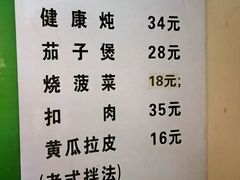 健康炖 34元
茄子煲 28元
烧菠菜 18元;
扣肉 35元
黄瓜拉皮 16元
(老式拌法)